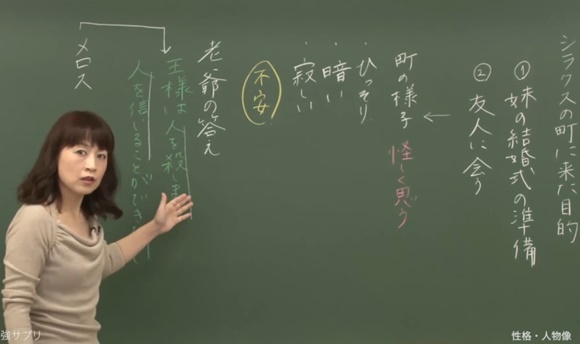 シラクスの町に来た目的
① 妹の結婚式の準備
② 友人に会う
←
町の様子 怪しく思う
・ひっそり
・暗い
・寂しい
不安
老爺の答え
王様は人を殺しま
人を信じることができ
メロス
強サプリ
性格・人物像